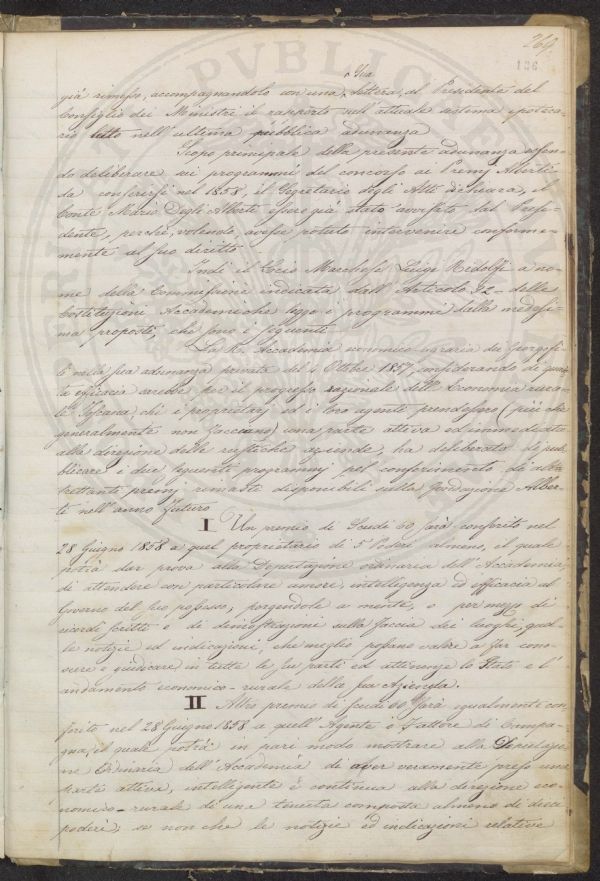 269.
186
Sua
già rimesso, accompagnandolo con una lettera, al Presidente del
Consiglio dei Ministri il rapporto sull'attuale sistema ipoteca-
rio letto nell'ultima pubblica adunanza
Scopo principale della presente adunanza essen-
do deliberare sui programmi del concorso ai Premj Alberti
da conferirsi nel 1858, il Segretario degli Atti dichiara, il
Conte Mario Degli Alberti essere già stato avvertito dal Presi-
dente, perché, volendo, avesse potuto intervenire conforme-
mente al suo diritto
Indi il Socio Marchese Luigi Ridolfi a no-
me della Commissione indicata dall'Articolo 92 delle
Costituzioni Accademiche legge i programmi dalla medesi-
ma proposti, che sono i seguenti
La R. Accademia economico-agraria dei Georgofi-
li nella sua adunanza privata del 4 Ottobre 1857, considerando di quan-
ta efficacia sarebbe per il progresso razionale dell'Economia rura-
le Toscana, che i proprietarj ed i loro agenti prendessero (più che
generalmente non facciano) una parte attiva ed immediata
alla direzione delle rustiche aziende, ha deliberato di pub-
blicare i due seguenti programmi pel conferimento di al-
trettanti premj rimasti disponibili sulla fondazione Alber-
ti nell'anno futuro
I Un premio di Scudi 60 sarà conferito nel
28 Giugno 1858 a quel proprietario di 5 Poderi almeno, il quale
potrà dar prova alla Deputazione ordinaria dell'Accademia,
di attendere con particolare amore, intelligenza ed efficacia al
Governo del suo possesso, porgendole a mente, o per mezzo di
ricordi scritti o di dimostrazioni sulla faccia dei luoghi, quel-
le notizie ed indicazioni, che meglio possano valere a far cono-
scere e giudicare in tutte le sue parti ed attinenze lo Stato e l'
andamento economico-rurale della sua Azienda.
II Altro premio di scudi 60 sarà egualmente con-
ferito nel 28 Giugno 1858 a quell'Agente o Fattore di Campa-
gna, il quale potrà in pari modo mostrare alla Deputazio-
ne Ordinaria dell'Accademia di aver veramente preso una
parte attiva, intelligente e continua alla direzione eco-
nomico-rurale di una tenuta composta almeno di dieci
poderi; se non che le notizie ed indicazioni relative